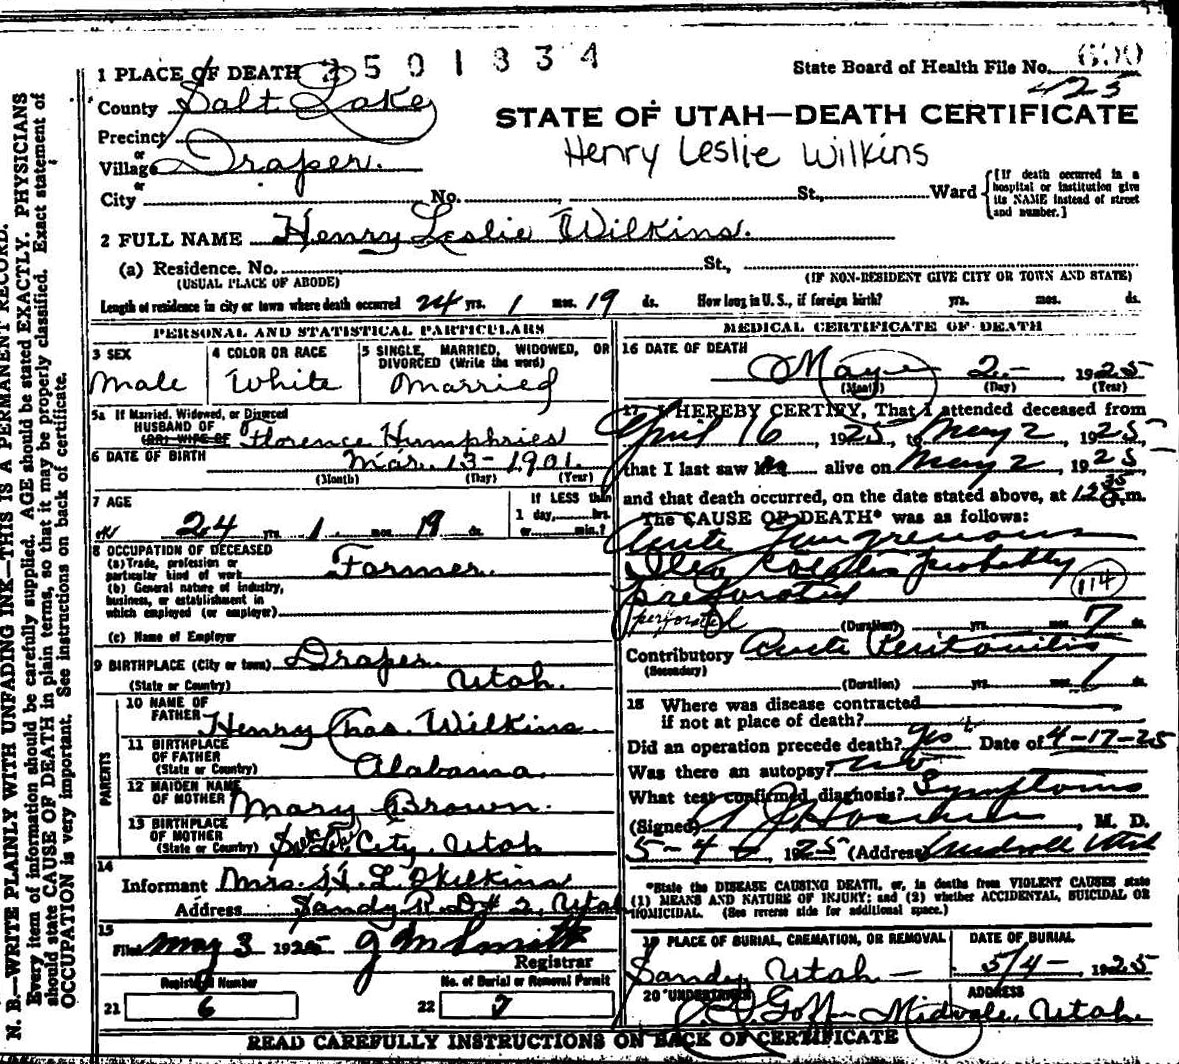 1 PLACE OF DEATH 3501834
State Board of Health File No. 600
425
County Salt Lake
STATE OF UTAH—DEATH CERTIFICATE
Precinct
or
Village Draper.
Henry Leslie Wilkins
or
City No. St., Ward
[If death occurred in a
hospital or institution give
its NAME instead of street
and number.]
2 FULL NAME Henry Leslie Wilkins.
(a) Residence. No. St.,
(USUAL PLACE OF ABODE) (IF NON-RESIDENT GIVE CITY OR TOWN AND STATE)
Length of residence in city or town where death occurred 24 yrs. 1 mos. 19 ds. How long in U. S., if foreign birth? yrs. mos. ds.
PERSONAL AND STATISTICAL PARTICULARS
3 SEX 4 COLOR OR RACE 5 SINGLE, MARRIED, WIDOWED, OR
DIVORCED (Write the word)
Male White Married
5a If Married, Widowed, or Divorced
HUSBAND OF
(OR) WIFE OF Florence Humphries
6 DATE OF BIRTH Mar. 13-1901.
(Month) (Day) (Year)
7 AGE
24 yrs. 1 mos. 19 ds.
If LESS than
1 day, hrs.
or min.?
8 OCCUPATION OF DECEASED
(a) Trade, profession or
particular kind of work Farmer.
(b) General nature of industry,
business, or establishment in
which employed (or employer)
(c) Name of Employer
9 BIRTHPLACE (City or town) Draper
(State or Country) Utah.
PARENTS
10 NAME OF
FATHER Henry Chas. Wilkins.
11 BIRTHPLACE
OF FATHER
(State or Country) Alabama.
12 MAIDEN NAME
OF MOTHER Mary Brown.
13 BIRTHPLACE
OF MOTHER
(State or Country) Salt Lk City, Utah
14
Informant Mrs. H. L. Wilkins
Address Sandy R.D.# 2, Utah
15
Filed May 3 1925 J M Smith
Registrar
Registered Number No. of Burial or Removal Permit
21 6 22 7
MEDICAL CERTIFICATE OF DEATH
16 DATE OF DEATH
May 2- 1925
(Month) (Day) (Year)
17 I HEREBY CERTIFY, That I attended deceased from
April 16, 1925, to May 2, 1925
that I last saw alive on May 2, 1925
and that death occurred, on the date stated above, at 12 35 m.
The CAUSE OF DEATH* was as follows:
Acute Gangrenous
Ileo Colitis probably
preforated
114
perforated
(Duration) yrs. mos. 7 ds.
Contributory Acute Peritonitis
(Secondary)
(Duration) yrs. mos. 1 ds.
18 Where was disease contracted
if not at place of death?
Did an operation precede death? Yes Date of 4-17-25
Was there an autopsy? no
What test confirmed diagnosis? Symptoms
(Signed) M. D.
5-4, 1925 (Address) Midvale Utah
*State the DISEASE CAUSING DEATH, or, in deaths from VIOLENT CAUSES state
(1) MEANS AND NATURE OF INJURY; and (2) whether ACCIDENTAL, SUICIDAL OR
HOMICIDAL. (See reverse side for additional space.)
19 PLACE OF BURIAL, CREMATION, OR REMOVAL DATE OF BURIAL
Sandy Utah— 5/4- 1925
20 UNDERTAKER ADDRESS
Goff Midvale, Utah.
READ CAREFULLY INSTRUCTIONS ON BACK OF CERTIFICATE
N. B.—WRITE PLAINLY WITH UNFADING INK—THIS IS A PERMANENT RECORD.
Every item of information should be carefully supplied. AGE should be stated EXACTLY. PHYSICIANS
should state CAUSE OF DEATH in plain terms, so that it may be properly classified. Exact statement of
OCCUPATION is very important. See instructions on back of certificate.